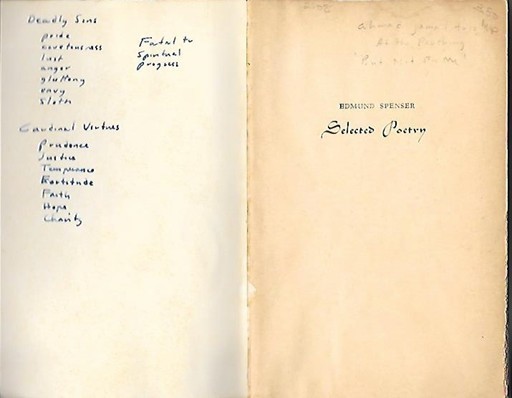 Deadly Sins
pride
covetousness
lust
anger
gluttony
envy
Sloth
Fatal to
Spiritual
Progress
Cardinal Virtues
Prudence
Justice
Temperance
Fortitude
Faith
Hope
Charity
EDMUND SPENSER
Selected Poetry